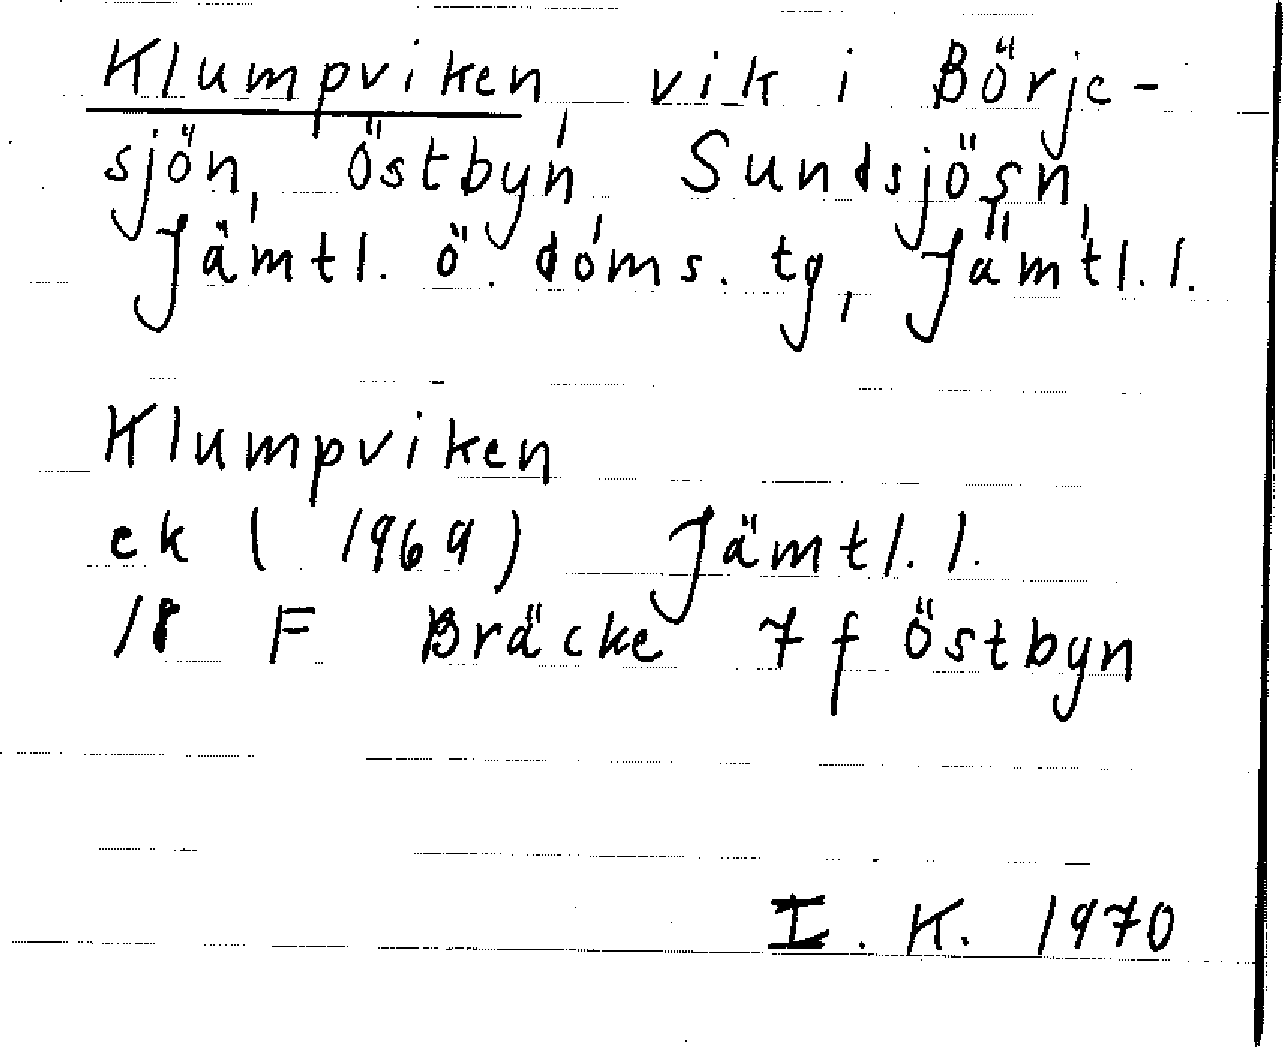 Klumpviken, vik i Börje-
sjön, Östbyn, Sundsjö sn,
Jämtl. ö. doms. tg, Jämtl. l.
Klumpviken
ek (1969) Jämtl. l.
18 F Bräcke 7 f Östbyn
I. K. 1970